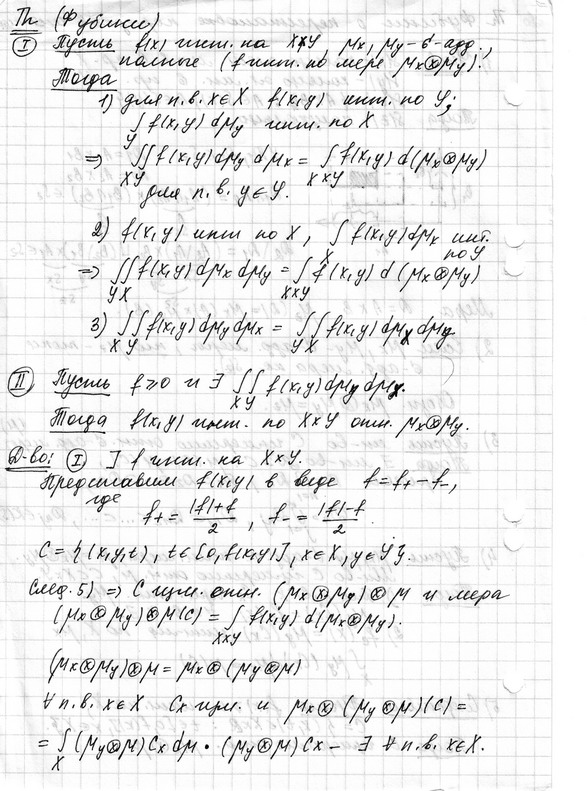 Th (Фубини)
I Пусть f(x) инт. на X×Y, μx, μy – σ-адд.,
полные (f инт. по мере μx⊗μy).
Тогда
1) для п.в. x∈X f(x,y) инт. по Y;
∫_Y f(x,y) dμy инт. по X
⇒ ∫_X∫_Y f(x,y) dμy dμx = ∫_{X×Y} f(x,y) d(μx⊗μy)
для п.в. y∈Y.
2) f(x,y) инт по X, ∫_X f(x,y) dμx инт. по Y
⇒ ∫_Y∫_X f(x,y) dμx dμy = ∫_{X×Y} f(x,y) d(μx⊗μy)
3) ∫_X∫_Y f(x,y) dμy dμx = ∫_Y∫_X f(x,y) dμx dμy
II Пусть f≥0 и ∃ ∫_X∫_Y f(x,y) dμy dμx.
Тогда f(x,y) инт. по X×Y отн. μx⊗μy.
Д-во: I ] f инт. на X×Y.
Представим f(x,y) в виде f=f+ – f–,
где f+ = (|f|+f)/2, f– = (|f|–f)/2.
C = {(x,y,t), t∈[0,f(x,y)], x∈X, y∈Y}.
След. 5) ⇒ C изм. отн. (μx⊗μy)⊗μ и мера
(μx⊗μy)⊗μ(C) = ∫_{X×Y} f(x,y) d(μx⊗μy).
(μx⊗μy)⊗μ = μx⊗(μy⊗μ)
∀ п.в. x∈X Cx изм. и μx⊗(μy⊗μ)(C) =
= ∫_X (μy⊗μ)Cx dμ · (μy⊗μ)Cx – ∃ ∀ п.в. x∈X.